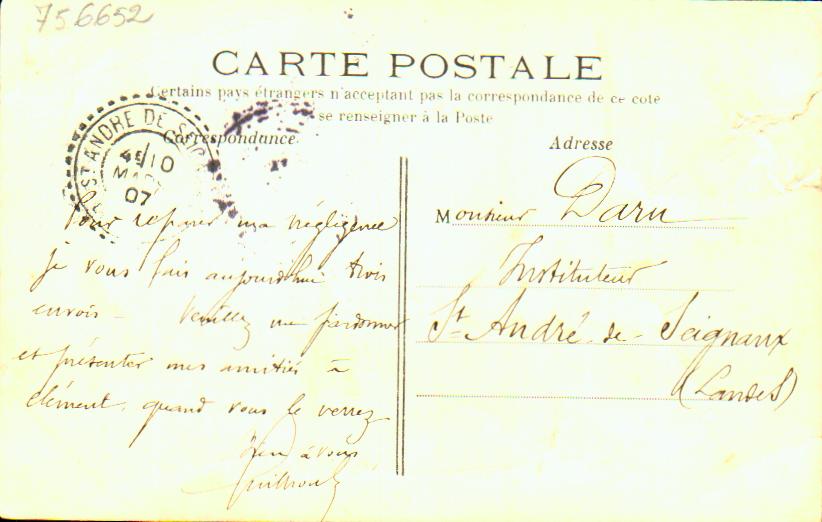 756652
CARTE POSTALE
Certains pays étrangers n'acceptant pas la correspondance de ce coté
se renseigner à la Poste
Correspondance
Adresse
ST ANDRE DE
10
MARS
07
Pour réparer ma négligence
je vous fais aujourd'hui trois
envois - Veuillez me pardonner
et présenter mes amitiés à
Clément, quand vous le verrez
Bien à vous
Monsieur Daru
Instituteur
St André-de-Seignaux
(Landes)